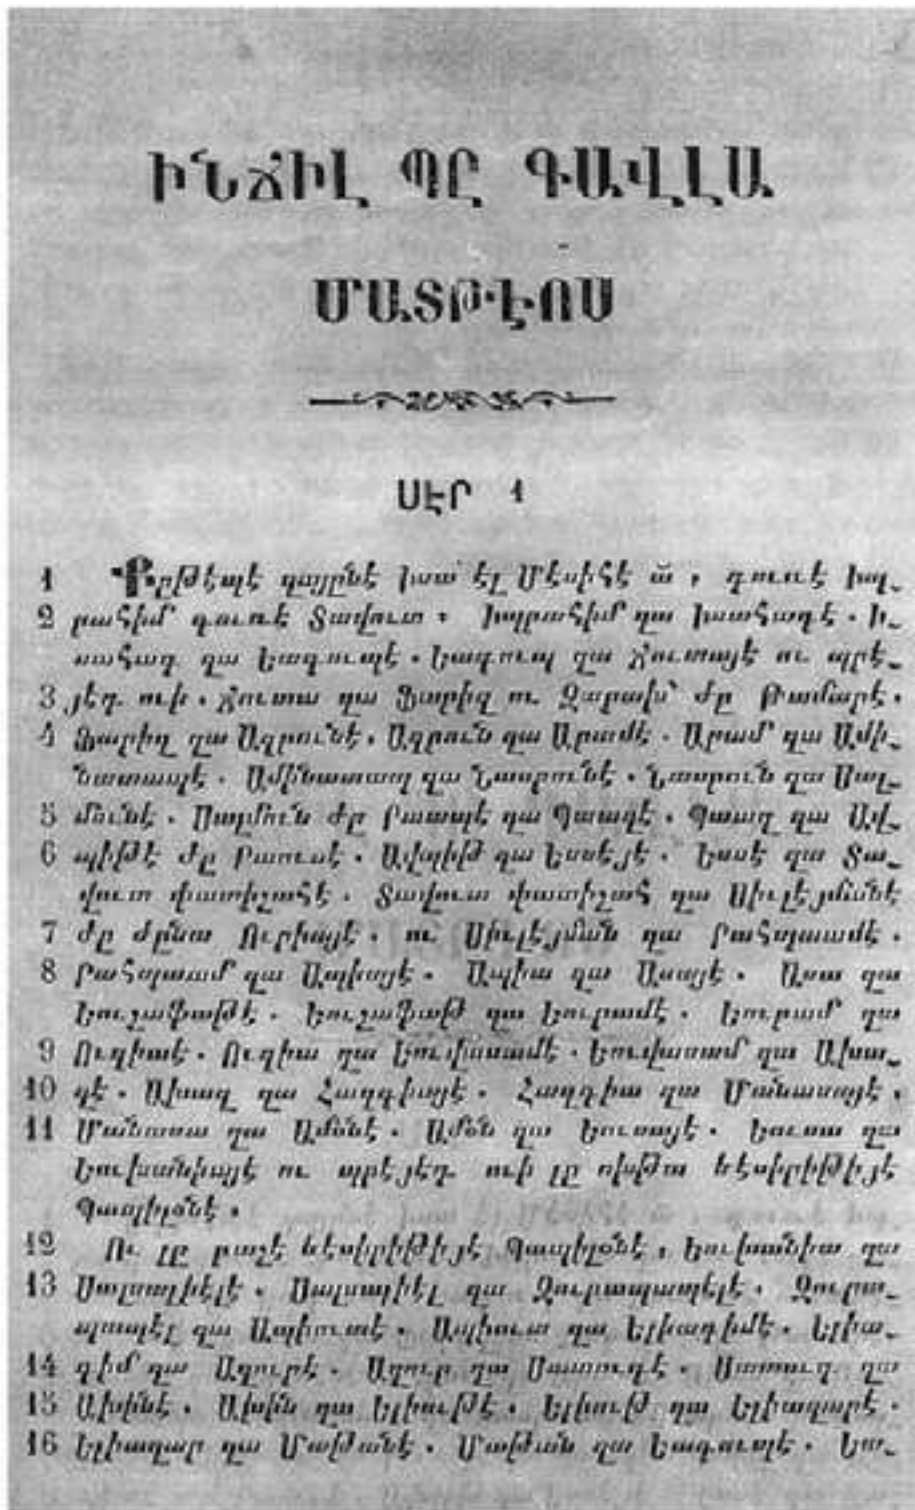 ԻՆՃԻԼ ՊԸ ԳԱՎԼԱ
ՄԱՏԹԷՈՍ
ՍԷՐ 1
1 Քըթէպէ զայընէ Իսա էլ Մէսիհէ ա՟ , գուռէ Իպ֊
2 րահիմ գուռէ Տավուտ ։ Իպրահիմ զա Իսահագէ . Ի֊
սահագ զա Եագուպէ . Եագուպ զա Ճուտայէ ու պրէ֊
3 յէդ ուի . Ճուտա զա Ֆարիզ ու Զարախ՝ ժը Թամարէ .
4 Ֆարիզ զա Ազրունէ . Ազրուն զա Արամէ . Արամ զա Ամի֊
նատապէ . Ամինատապ զա Նասրունէ . Նասրուն զա Սալ֊
5 մունէ . Սալմուն ժը Րաապէ զա Պաազէ . Պաազ զա Ավ֊
6 պիթէ ժը Րաուսէ . Ավպիթ զա Եսսէյէ . Եսսէ զա Տա֊
վուտ փատիշահէ . Տավուտ փատիշահ զա Սիւլէյմանէ
7 ժը ժընա Ուրիայէ . ու Սիւլէյման զա Րահպաամէ .
8 Րահպաամ զա Ապիայէ . Ապիա զա Ասայէ . Ասա զա
Եուշաֆաթէ . Եուշաֆաթ զա Եուրամէ . Եուրամ զա
9 Ուզիաէ . Ուզիա զա Եուվասամէ . Եուվասամ զա Ախա֊
10 զէ . Ախազ զա Հազգիայէ . Հազգիա զա Մանասայէ .
11 Մանասա զա Ամօնէ . Ամօն զա Եուսայէ . Եուսա զա
Եուխանիայէ ու պրէյէդ ուի լը ոխթա եէսիրիթիյէ
Պապիլօնէ .
12 Ու լը բաշէ եէսիրիթիյէ Պապիլօնէ , Եուխանիա զա
13 Սալսալիէլէ . Սալսալիէլ զա Զուրապապէլէ . Զուրա֊
պապէլ զա Ապիուտէ . Ապիուտ զա Ելիագիմէ . Ելիա֊
14 գիմ զա Ազուրէ . Ազուր զա Սատուգէ . Սատուգ զա
15 Ախինէ . Ախին զա Ելիութէ . Ելիութ զա Ելիազարէ .
16 Ելիազար զա Մաթանէ . Մաթան զա Եագուպէ . Եա֊